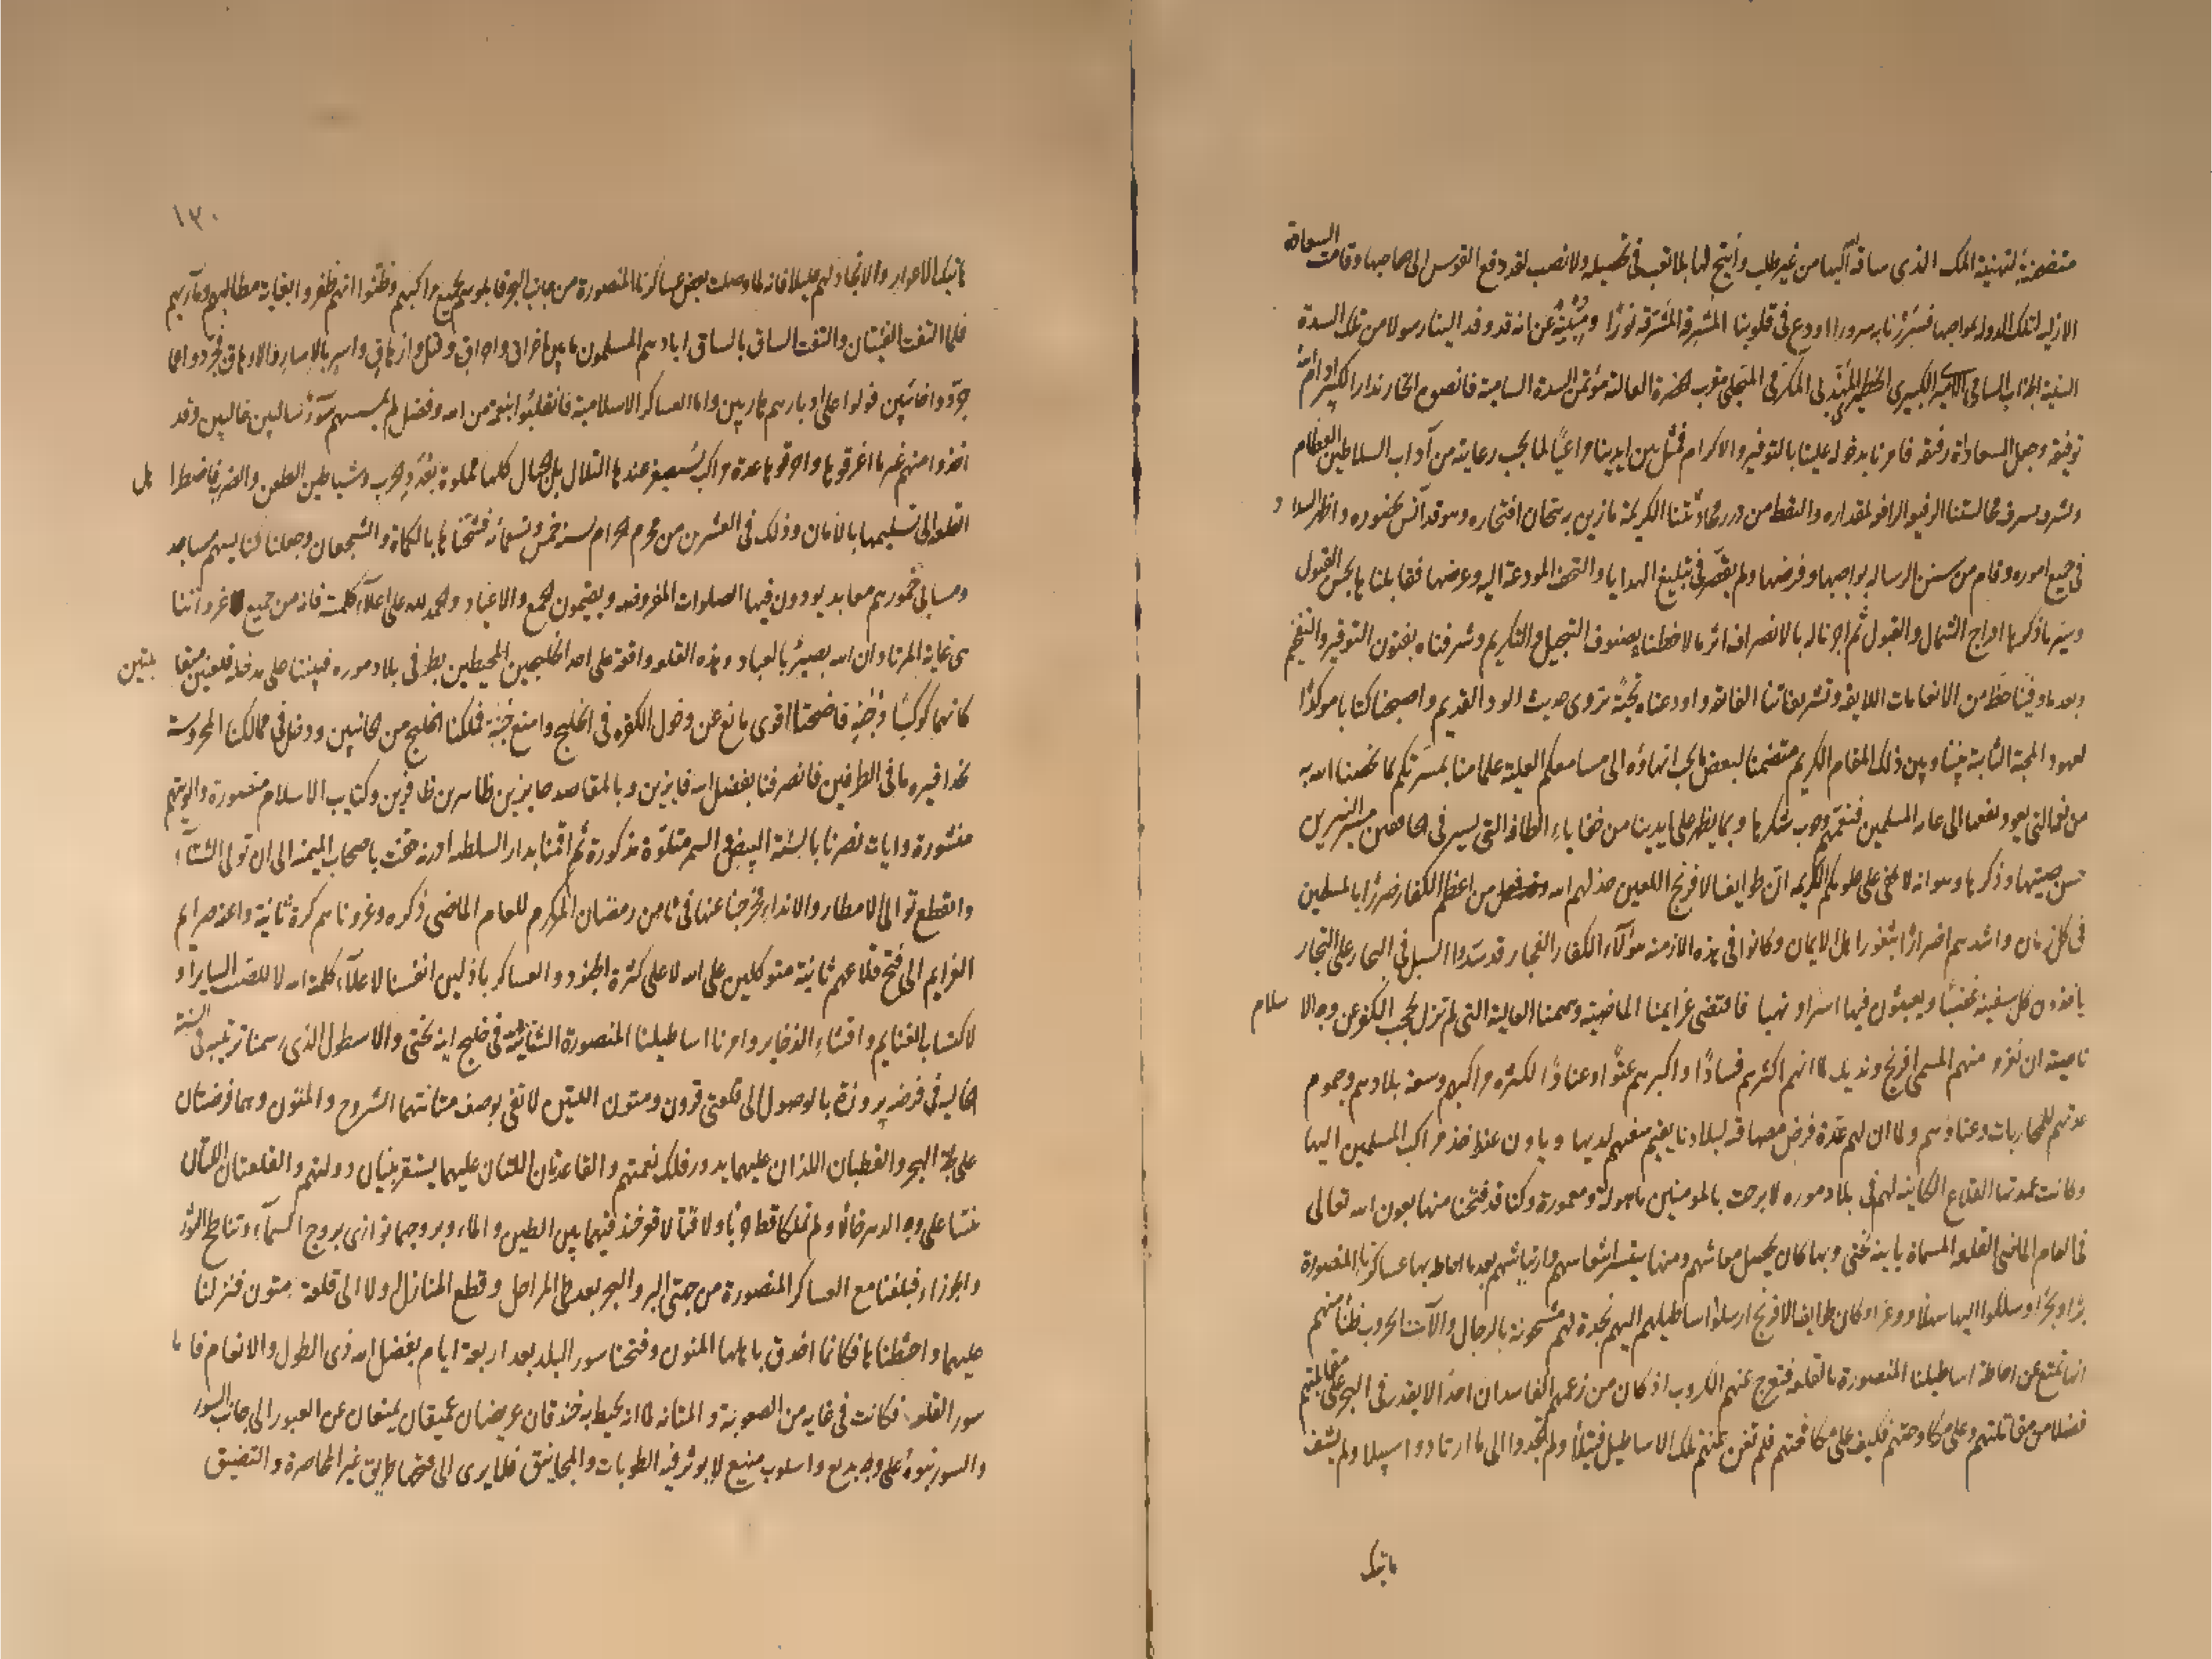 متضمنة لتهنية الملك الذى ساقه الله اليها من غير طلب وأتيح لها بلا تعب فى تحصيله ولا نصب لقد دفع القوس الى صاحبها وقامت السعادة
الازلية لتلك الدولة بواجبها فسررنا به سرورا اودع فى قلوبنا المشرفة المشرقة نورا ومنبئة عن انه قد وفد الينا رسولا من تلك السدة
السنية الجناب السامى الاميرى الكبيرى مقرب الحضرة العالية مؤتمن السدة السامية قانصوه الخازندار الكبير ادام الله
توفيقه وجعل السعادة رفيقه فامرنا بدخوله علينا بالتوقير والاكرام فمثل بين ايدينا مراعيا لما يجب رعايته من آداب السلاطين العظام
وتشرف بشرف مجالستنا الرفيع الرافع لمقداره والتقط من درر محادثتنا الكريمة ما زين به تيجان افتخاره وهو قد آنس بحضوره واظهر السداد
فى جميع اموره وقام من سنن الرسالة بواجبها وفرضها ولم يقصر فى تبليغ الهدايا والتحف المودعة اليه وعرضها فقابلناها بحسن القبول
ثم اجزنا له بالانصراف اثر ما لاحظناه بصنوف التبجيل والتكريم وشرفناه بفنون التوقير والتفخيم
وبعد ما وفينا حظه من الانعامات اللايقة وتشريفاتنا الفائقة واودعناه تحية تروى حديث الود القديم واصحبنا كتابا موكدا
لعهود المحبة الثابتة بيننا وبين ذلك المقام الكريم متضمنا لبعض ما يجب انهاؤه الى مسامعكم العلية علما منا بمسرتكم بما خصنا الله به
من نعما التى يعود نفعها الى عامة المسلمين فتعمهم وجوب شكرها وبما يظهر على ايدينا من خفايا الطافه التى يسير فى الخافقين مسير النيرين
حسن صيتها وذكرها وهو انه لا يخفى على علومكم الكريمة ان طوايف الافرنج اللعين خذلهم الله من اعظم الكفار ضررا بالمسلمين
فى كل زمان واشدهم اضرارا بثغور اهل الايمان وكانوا فى هذه الازمنة هؤلاء الكفار الفجار قد سدوا السبل فى البحار على التجار
يأخذون كل سفينة غصبا ويعيثون فيها اسرا ونهبا فاقتضى عزايمنا الماضية وهممنا العالية التى لم تزل تحجب الكفر عن وجه الاسلام
ناصيته ان نغزو منهم المسمى افرنج وندیك لما انهم اكثرهم فسادا واكبرهم عتوا وعنادا لكثرة مراكبهم وسعة بلادهم وعموم
عدتهم للمحاربات وعنادهم ولما ان لهم عدة فرض مصاقبة لبلادنا يقيم بعضهم لديها وياوون عند اخذ مراكب المسلمين اليها
وكانت عمدتها القلاع الكاينة لهم فى بلاد موره لا برحت بالمومنين ماهولة ومعمورة وكنا قد فتحنا منها بعون الله تعالى
فى العام الماضى القلعة المسماة باينه بختى وبها كان يحصل معاشهم ومنها يتيسر انتعاشهم وارتياشهم بعد ما احاط بها عساكرنا المنصورة
برا وبحرا وسلكوا اليها سهلا ووعرا وكان طوايف الافرنج ارسلوا اساطيلهم اليهم نجدة لهم مشحونة بالرجال وآلات الحروب ظنا منهم
انها تمنع عن احاطة اساطيلنا المنصورة بالقلعة فتفرج عنهم الكروب اذ كان من زعمهم الفاسد ان احدا لا يقدر فى البحر على مقابلتهم
فضلا من مقاتلتهم وعلى مكاوحتهم فكيف على مكافحتهم فلم تغن عنهم تلك الاساطيل فتيلا ولم يجدوا الى ما ارتادوا سبيلا ولم يشف
هاتيك
١٣٠
هاتيك الاعوان والانجاد لهم غليلا فانه لما وصلت بعض عساكرنا المنصورة من جانب البحر قابلوهم بجميع مراكبهم وظنوا انهم ظفروا بغاية مطالبهم ومآربهم
فلما التقت الفئتان والتفت الساق بالساق ابادهم المسلمون ما بين اغراق واحراق وقتل وازهاق واسر بالاسار والاوهاق
فولوا على ادبارهم هاربين واما العساكر الاسلامية فانقلبوا بنعمة من الله وفضل لم يمسسهم سوء سالمين غانمين وقد
اخذوا منهم غير ما اغرقوها واحرقوها عدة مراكب يستصغر عندها التلال بل الجبال كلها مملوة بعدد الحرب وشياطين الطعن والضرب فاضطر اهل
القلعة الى تسليمها بالامان وذلك فى العشرين من محرم الحرام لسنة خمس وتسعمائة فشحناها بالكماة والشجعان وجعلنا كنايسهم مساجد
ومساكن خمورهم معابد يودون فيها الصلوات المفروضة ويقيمون الجمع والاعياد والحمد لله على اعلاء كلمته فانه من جميع غزواتنا
هى غاية المرتاد ان الله بصير بالعباد وهذه القلعة واقعة على احد الخليجين المحيطين بطرفى بلاد موره فبنينا على مدخله قلعتين متقابلتين
كانهما كوكبا دجنة فاضحتا اقوى مانع عن دخول الكفرة فى الخليج وامنع جنة فملكنا الخليج من الجانبين ودخل فى ممالكنا المحروسة
بحذافيره ما فى الطرفين فانصرفنا بفضل الله فايزين وبالمقاصد حايزين ظاهرين ظافرين وكتايب الاسلام منصورة والويتهم
منشورة وايات نصرنا بالسنة البيض والسمر متلوة مذكورة ثم اقمنا بدار السلطنة ادرنه حفت باصحاب الميمنة الى ان تولى الشتاء
وانقطع توالى الامطار والانداء فخرجنا عنها فى ثامن رمضان المكرم للعام الماضى ذكره وغزوناهم كرة ثانية واعنة صرايم
العزايم الى فتح قلاعهم ثانية متوكلين على الله لا على كثرة الجنود والعساكر باذلين انفسنا لاعلاء كلمة الله لا للصيت الساير او
لاكتساب الغنايم واقتناء الذخاير وامرنا اساطيلنا المنصورة الشاتية فى خليج اينه بختى والاسطول الذى رسمنا ترتيبه فى السنة
الحالية فى فرضة پروزه بالوصول الى قلعتى قرون ومتون اللتين لا تفى بوصف متانتهما الشروح والمتون وهما فرضتان
على لجة البحر والقطبان اللذان عليهما يدور فلك نعمتهم والقاعدتان اللتان عليهما يستقر بنيان دولتهم والقلعتان اللتان
بروجهما توازى بروج السماء وتناطح الثور
والجوزاء فبلغنا مع العساكر المنصورة من جهتى البر والبحر بعد طى المراحل وقطع المنازل اولا الى قلعة متون فنزلنا
عليها واحطنا بها فكانما احدق باهلها المنون وفتحنا سور البلد بعد اربعة ايام بفضل الله ذى الطول والانعام فاما
سور القلعة فكانت فى غاية من الصعوبة والمتانة لما انه يحيط به خندقان عريضان عميقان يمنعان عن العبور الى جانب السور
والسور مبنية على وجه بديع واسلوب منيع لا يوثر فيه الطوبات والمجانيق فلا يرى الى فتحها طريق غير المحاصرة والتضييق